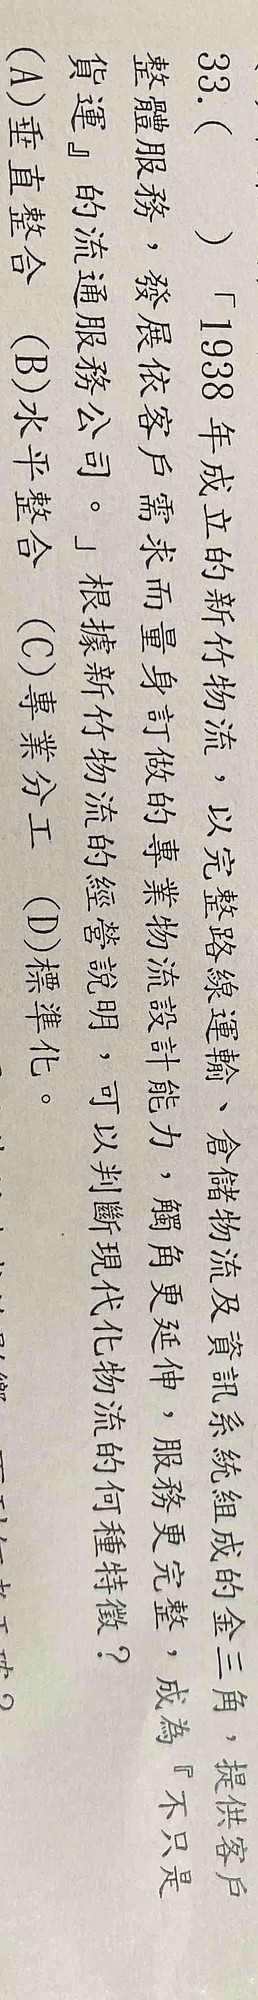 33.(　　)「1938 年成立的新竹物流，以完整路線運輸、倉儲物流及資訊系統組成的金三角，提供客戶
整體服務，發展依客戶需求而量身訂做的專業物流設計能力，觸角更延伸，服務更完整，成為『不只是
貨運』的流通服務公司。」根據新竹物流的經營說明，可以判斷現代化物流的何種特徵？
(A)垂直整合　(B)水平整合　(C)專業分工　(D)標準化。